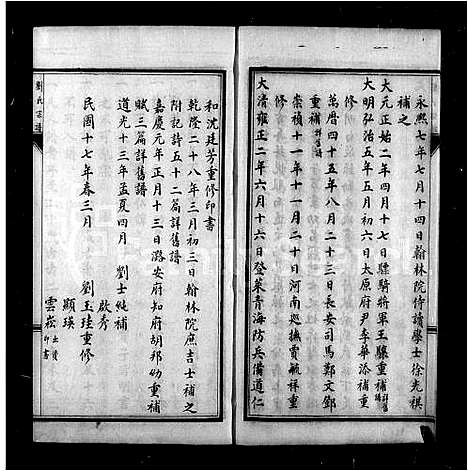 永熙七年七月十四日翰林院侍讀學士徐光祺
補之
大元正始二年四月十七日驃騎將軍王驥重補詳舊譜
大明弘治五年五月初六日太原府尹李華添補重
修
萬曆四十五年八月二十三日長安司馬鄭文鄧
重補詳舊譜
崇禎十一年十一月二十日河南巡撫賈毓祥重
修
大清雍正二年六月十六日登萊青海防兵備道仁
和沈廷芳重修印書
乾隆二十八年三月初三日翰林院庶吉士補之
附記詩五十二篇詳舊譜
嘉慶元年正月十三日潞安府知府胡邦幼重補
賦三篇詳舊譜
道光十三年孟夏四月 劉士純補
啟秀
民國十七年春三月 劉玉珪重修
顯瑛
雲崧 印書
劉氏宗譜